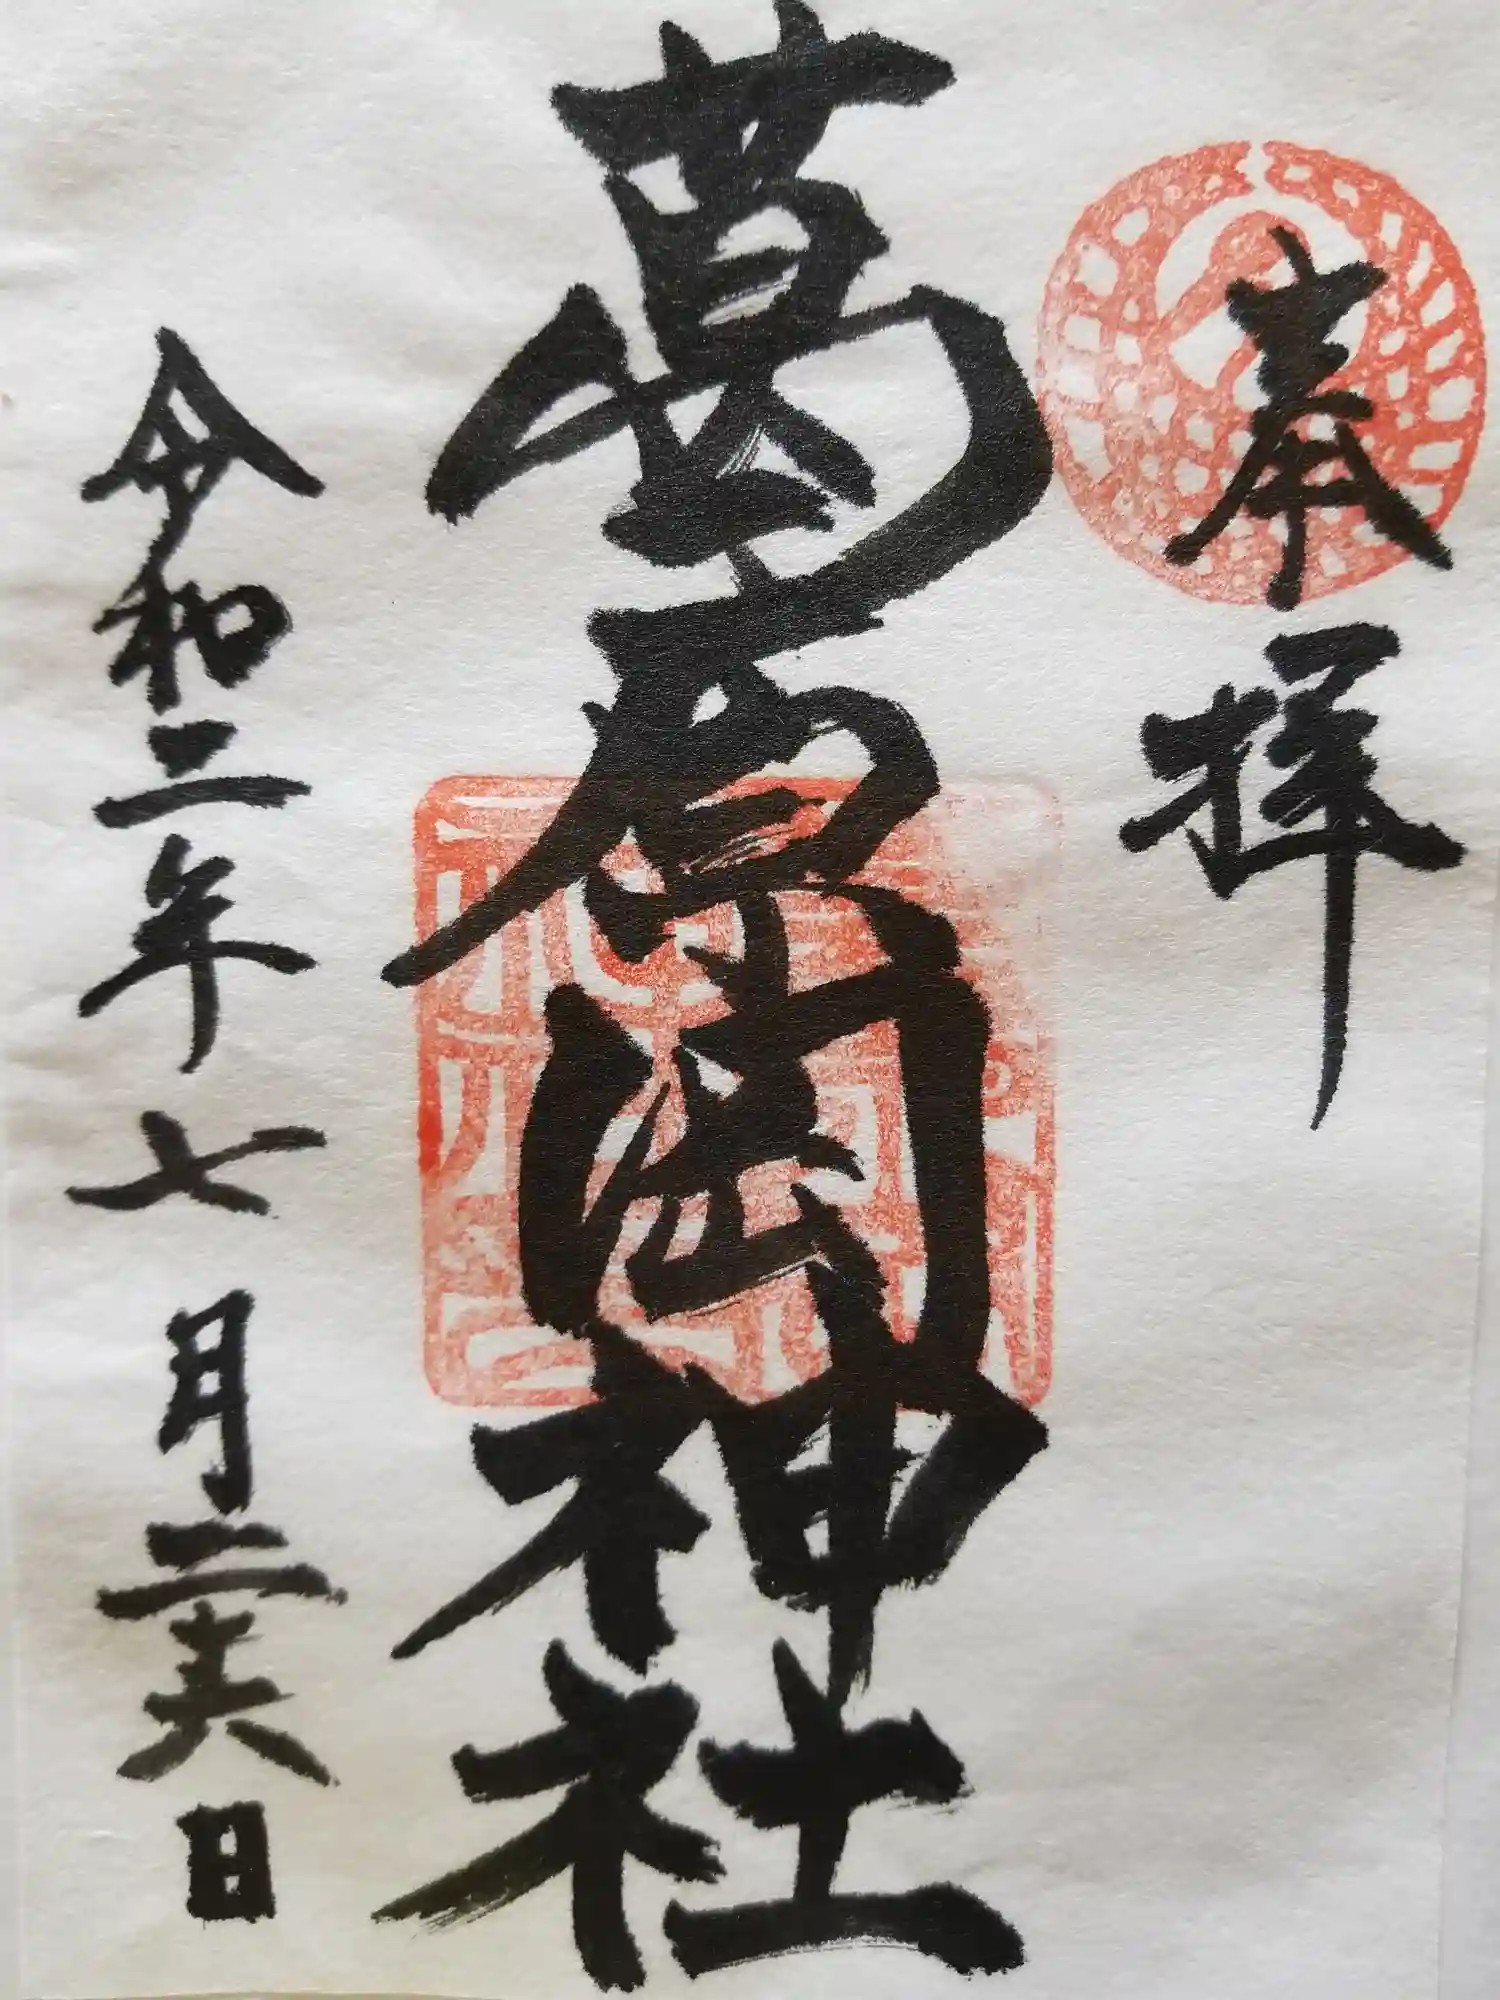 奉拝
葛原岡神社
令和二年七月二十六日